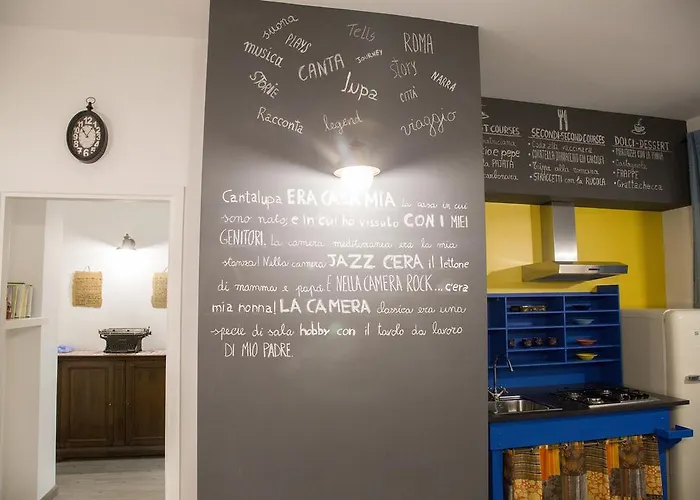 suona
Tells
PLAYS
ROMA
musica
CANTA
JOURNEY
STORY
NARRA
STORIE
lupa
CITTÀ
Racconta
legend
viaggio
Cantalupa ERA CASA MIA la casa in cui
sono nato; e in cui ho vissuto CON I MIEI
GENITORI. La camera mediterranea era la mia
stanza! Nella camera JAZZ C'ERA il lettone
di mamma e papà E NELLA CAMERA ROCK...c'era
mia nonna! LA CAMERA classica era una
specie di sala hobby con il tavolo da lavoro
DI MIO PADRE.
COURSES
SECONDI-SECOND COURSES
DOLCI-DESSERT
Coda alla vaccinara
cio e pepe
Castagnole
PATATA
Trippa alla romana
FRAPPE
carbonara
STRACCETTI con la RUCOLA
Grattachecca